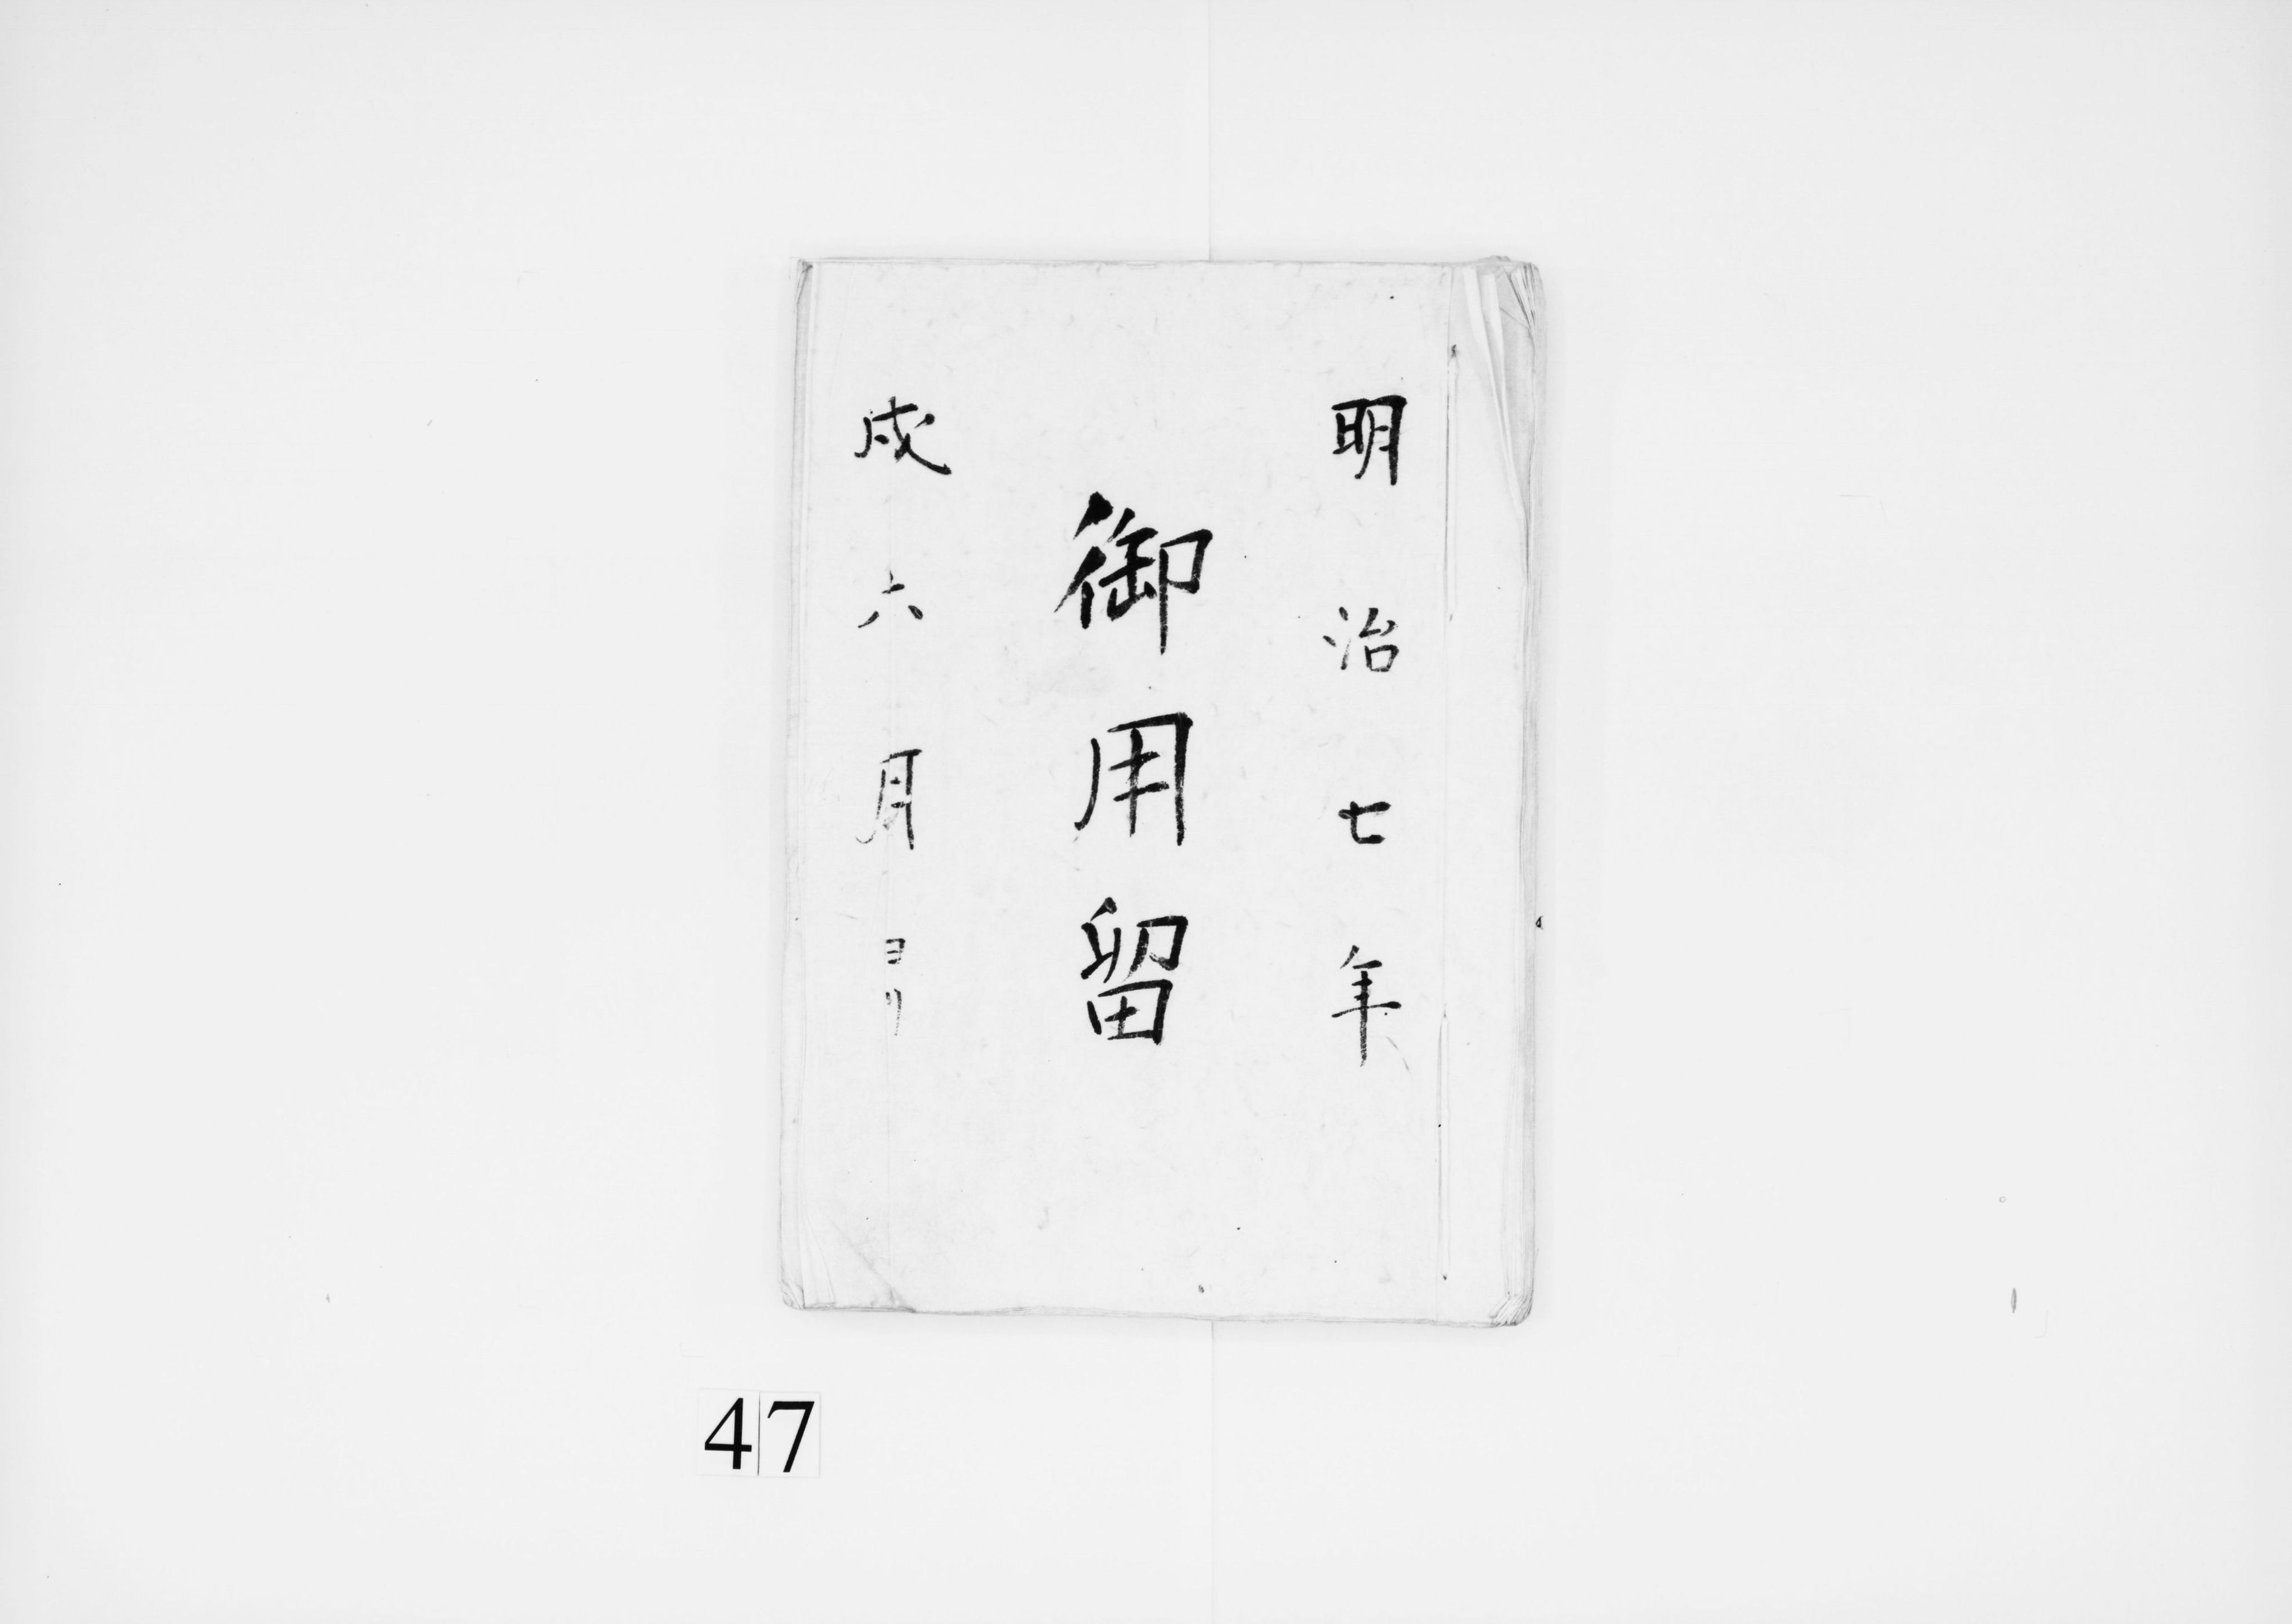 明治七年
御用留
戌六月ヨリ
47